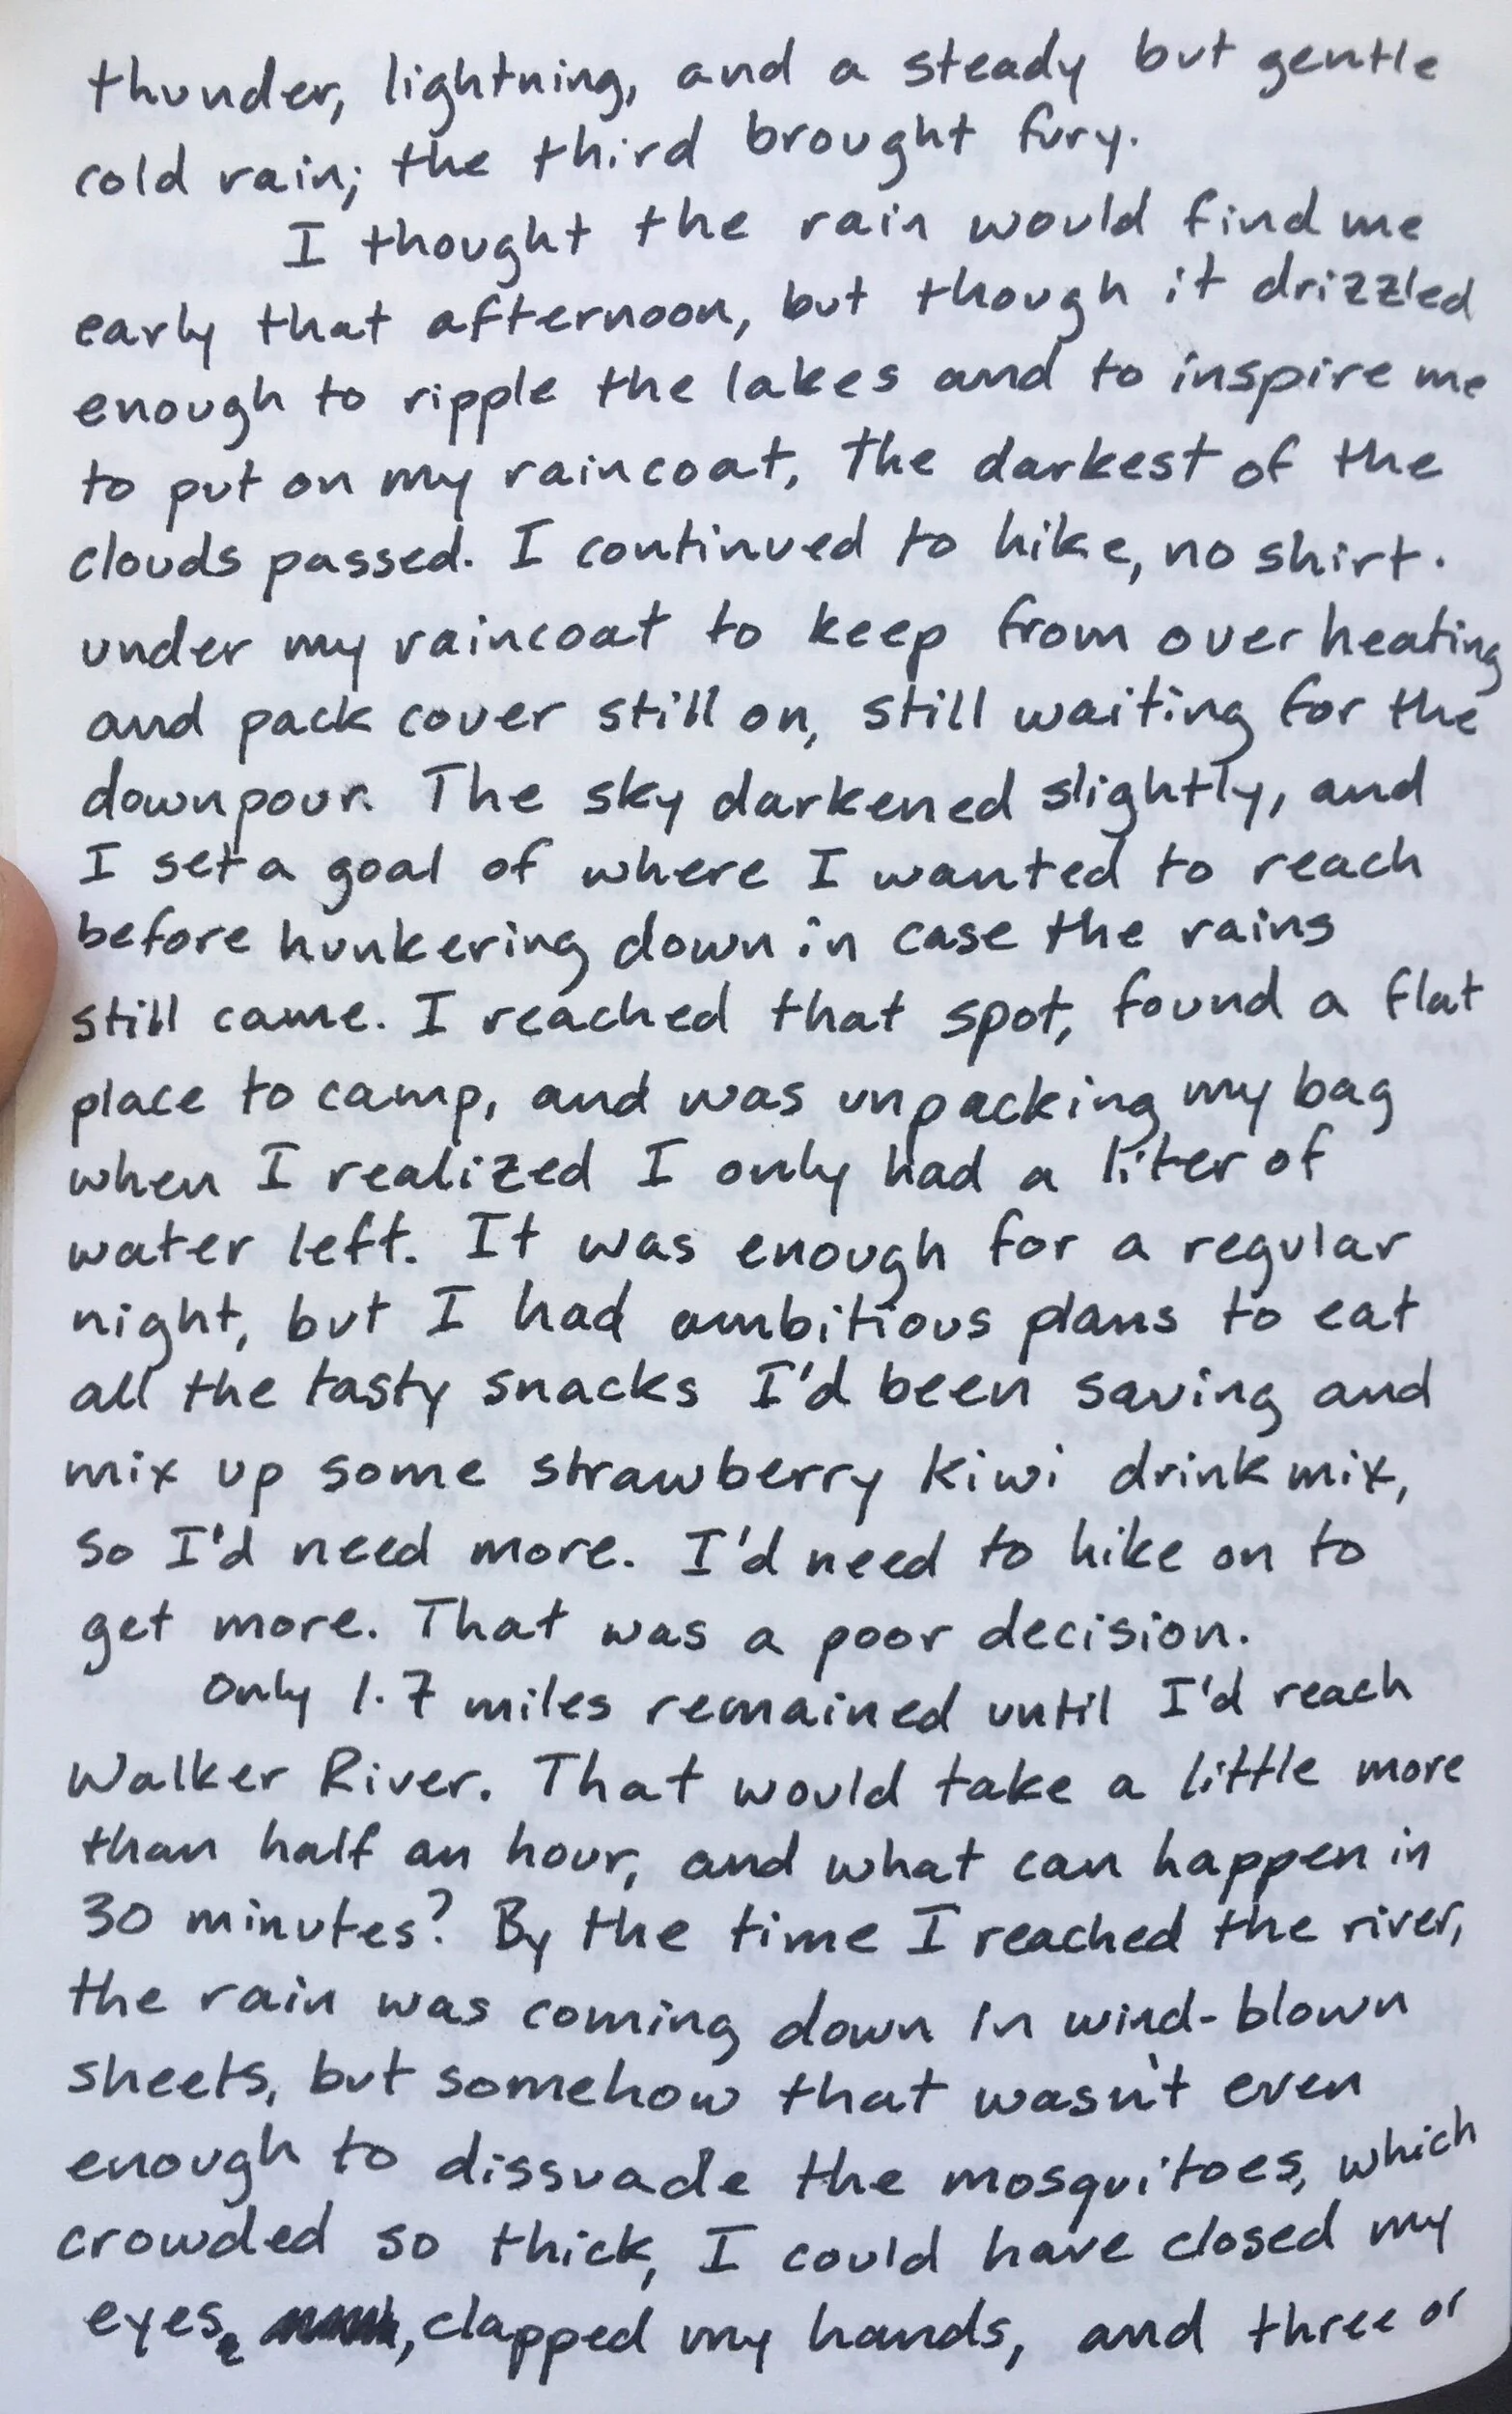 thunder, lightning, and a steady but gentle
cold rain; the third brought fury.
I thought the rain would find me
early that afternoon, but though it drizzled
enough to ripple the lakes and to inspire me
to put on my raincoat, the darkest of the
clouds passed. I continued to hike, no shirt.
under my raincoat to keep from overheating
and pack cover still on, still waiting for the
downpour. The sky darkened slightly, and
I set a goal of where I wanted to reach
before hunkering down in case the rains
still came. I reached that spot, found a flat
place to camp, and was unpacking my bag
when I realized I only had a liter of
water left. It was enough for a regular
night, but I had ambitious plans to eat
all the tasty snacks I'd been saving and
mix up some strawberry kiwi drink mix,
so I'd need more. I'd need to hike on to
get more. That was a poor decision.
Only 1.7 miles remained until I'd reach
Walker River. That would take a little more
than half an hour, and what can happen in
30 minutes? By the time I reached the river,
the rain was coming down in wind-blown
sheets, but somehow that wasn't even
enough to dissuade the mosquitoes, which
crowded so thick, I could have closed my
eyes, clapped my hands, and three or